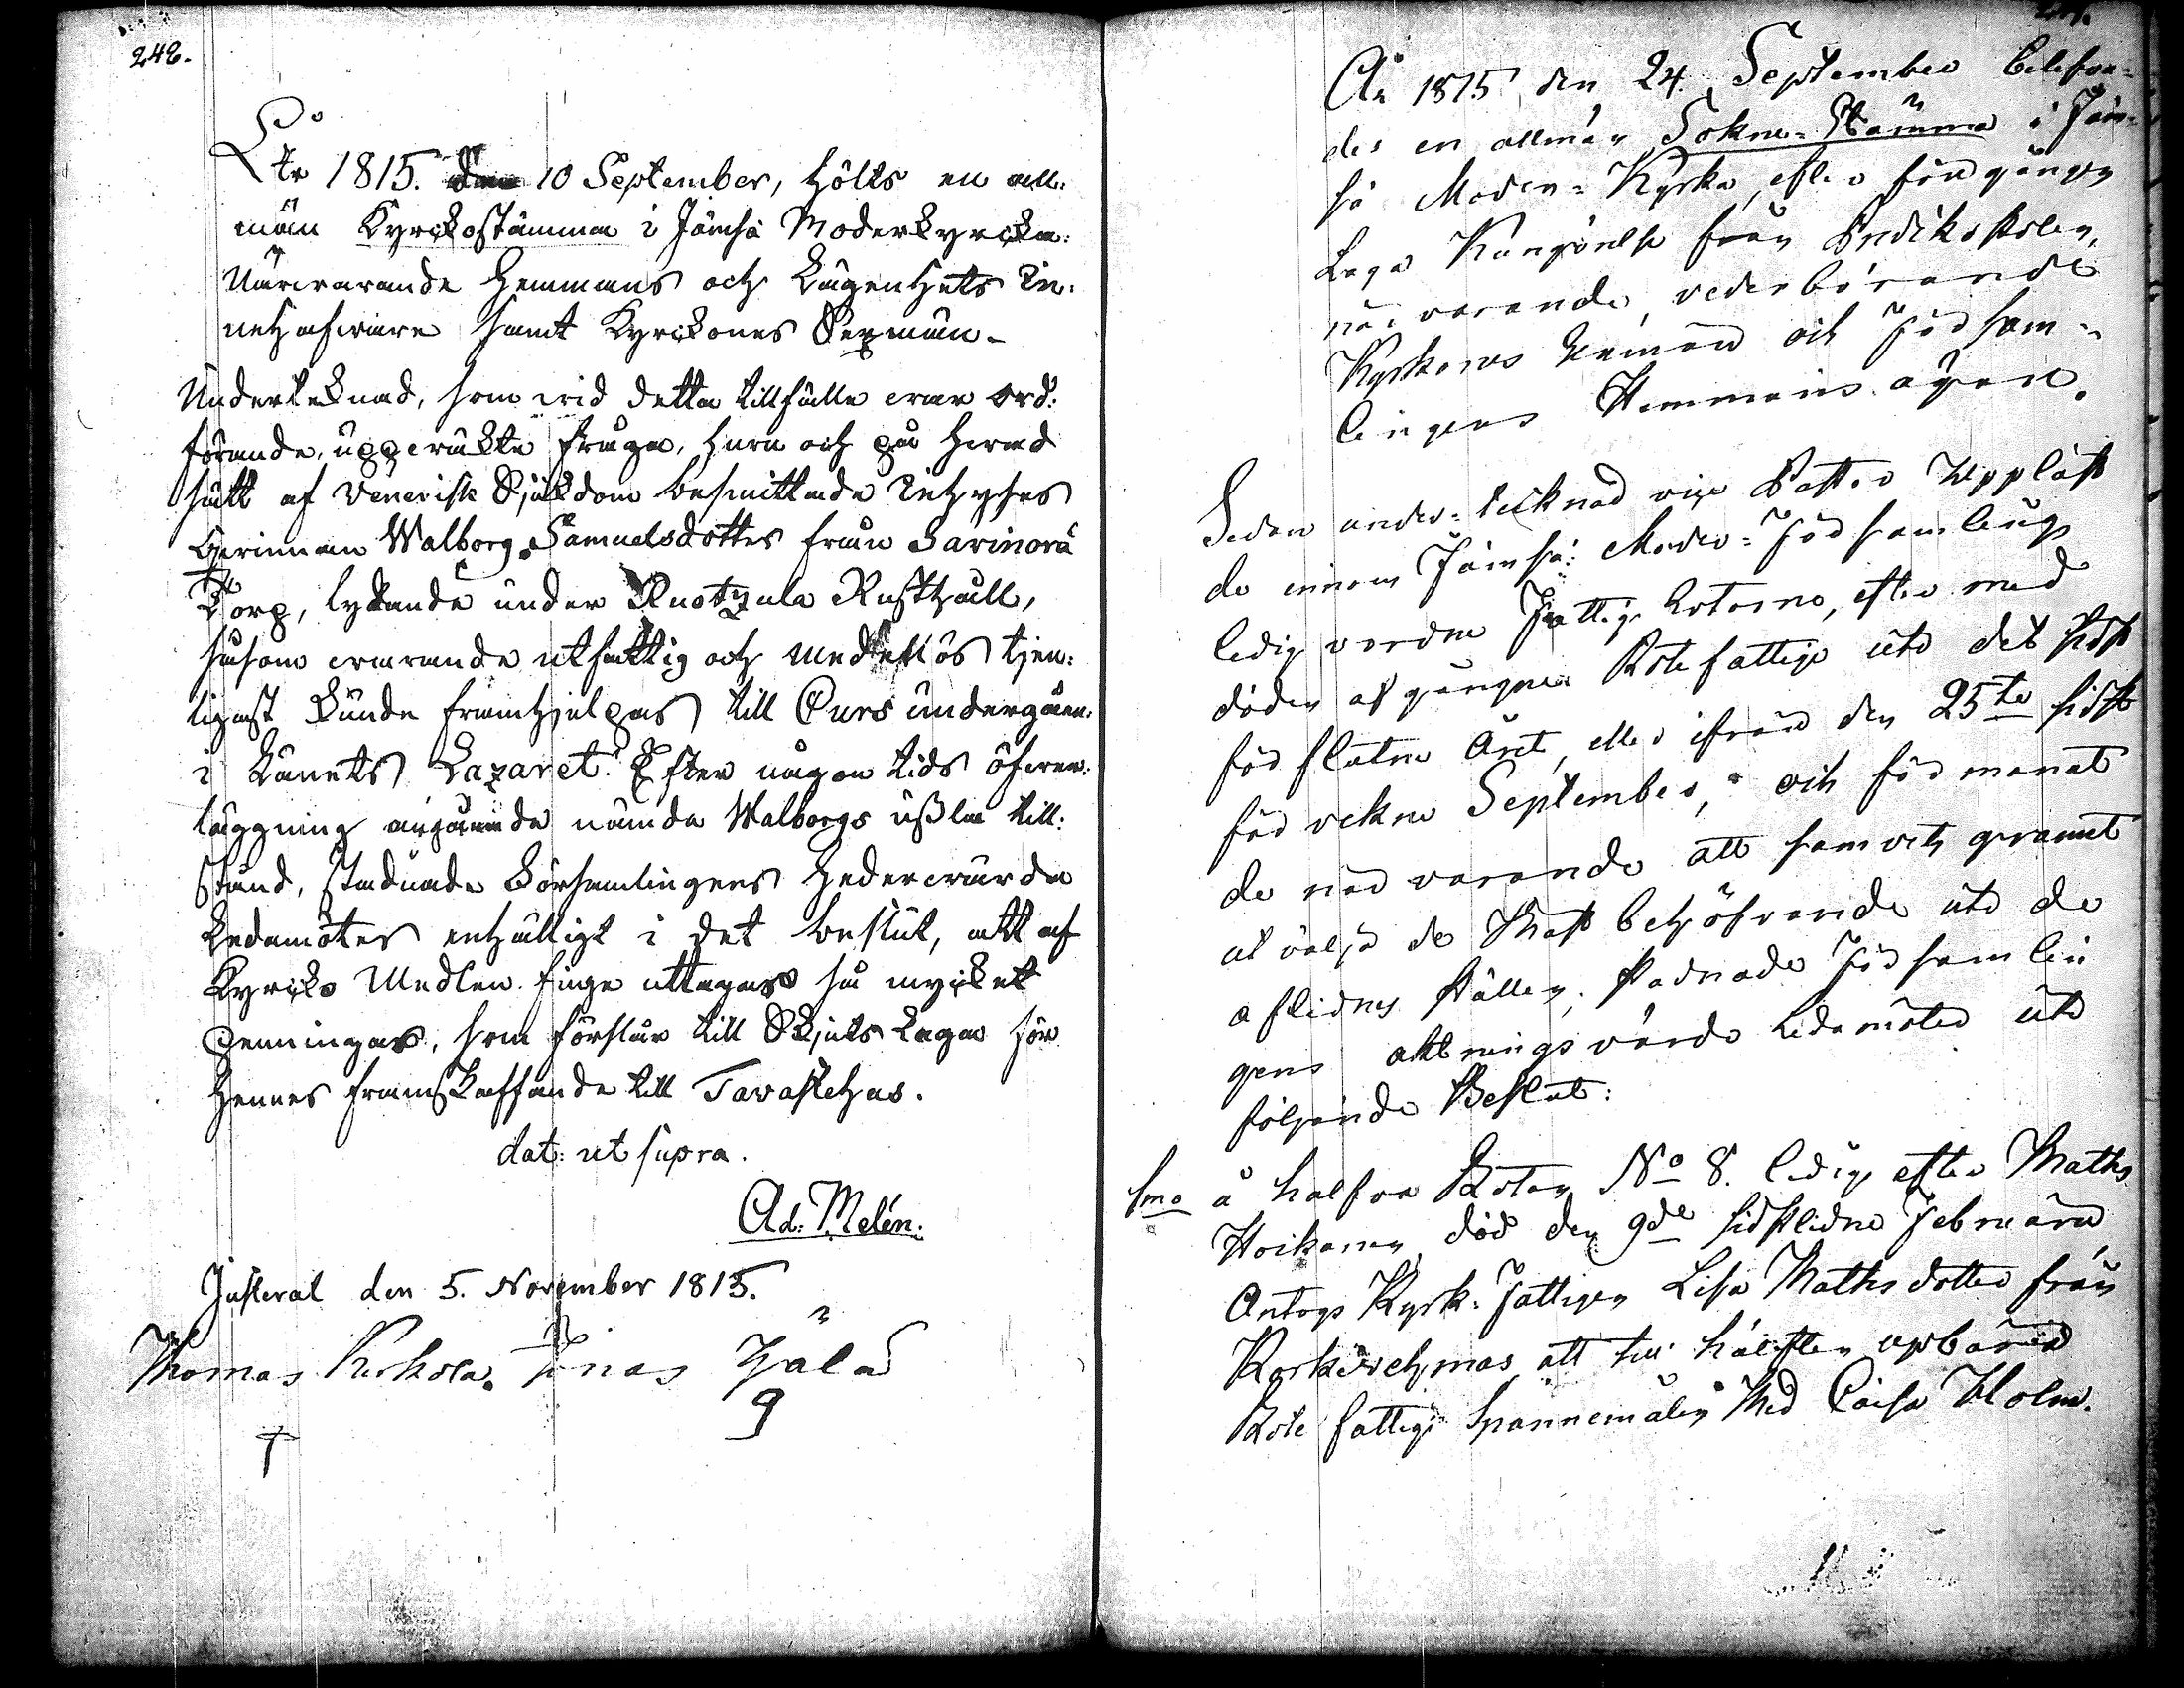 248.
År 1815. den 10 September, hölts en all:
män Kyrckostämma i Jämsä Moderkyrcka:
Närwarande Hemmans och Lägenhets In:
nehafware samt Kyrckones Sexmän.
Undertecknad, som wid detta tillfälle war ord:
förande, uppwäkte fråga, huru och på hwad
sätt af Venerisk Sjukdom besmittade Inhyses
Qwinnan Walborg Samuelsdotter från Sarinorä
Torp, lydande under Ruotzula Rusthåll,
såsom warande utfattig och medellös tjen:
ligast kunde framhjelpas till Curs undergåen:
i Länets Lazaret. Efter någon tids öfwer:
läggning angående nämda Walborgs ußla till:
stånd, stadnade Församlingens Hederwärda
Ledamöter enhälligt i det beslut, att af
Kyrcko Medlen finge uttagas så mycket
penningar, som förslår till Skjuts Laga för
hennes framskaffande till Tavastehus.
dat: ut supra.
Ad: Melén.
Justerat den 5. November 1815.
Thomas Kokola. Jonas Hjala
År 1815 den 24. September blefvor=
des en allmän Sokne-Stämma i Jäm=
sä Moder=Kyrka, efter föregången
Laga Kungörelse från Predikostolen,
närvarande, vederbörande
Kyrkones Sexmän och Församm=
lingens Hemmans ägare.
Sedan under=tecknad vice Pastor Uppläst
de innom Jämsä Moder=Församlings
ledig vordne Fattig Rotarne, efter med
döden afgångna Rote fattige uti det sidst
förflutne Året, eller ifrån den 25te sidst
förvekne September, och förmanat
de närvarande att samvetsgrannt
utvälja de Mäst behöfvande uti de
aflidnes ställen; stadnade Församlin
gens aktningsvärde Ledamöter uti
följande Beslut:
1mo å halfva Rotan No 8. ledig efter Maths
Hoikainen, död den 9de sidstledne Februari
Antogs Kyrk=Fattigen Lisa Mathsdotter från
att till hälften upbära
Rote fattigs Spannemålen Med Caisa Holm.